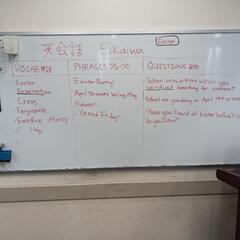 英会話 Eikaiwa
Easter
VOCAB 単語
- Easter
- Resurrection
- Cross
- Forgiveness
- Sacrifice Mercy
- Hop
PHRASES フレーズ
- "Easter Bunny"
- "April Showers bring May
flowers"
- "Good Friday"
QUESTIONS 質問
- What was a time when you
sacrificed something for someone?
- What are you doing on April
- Have you heard of Easter before?